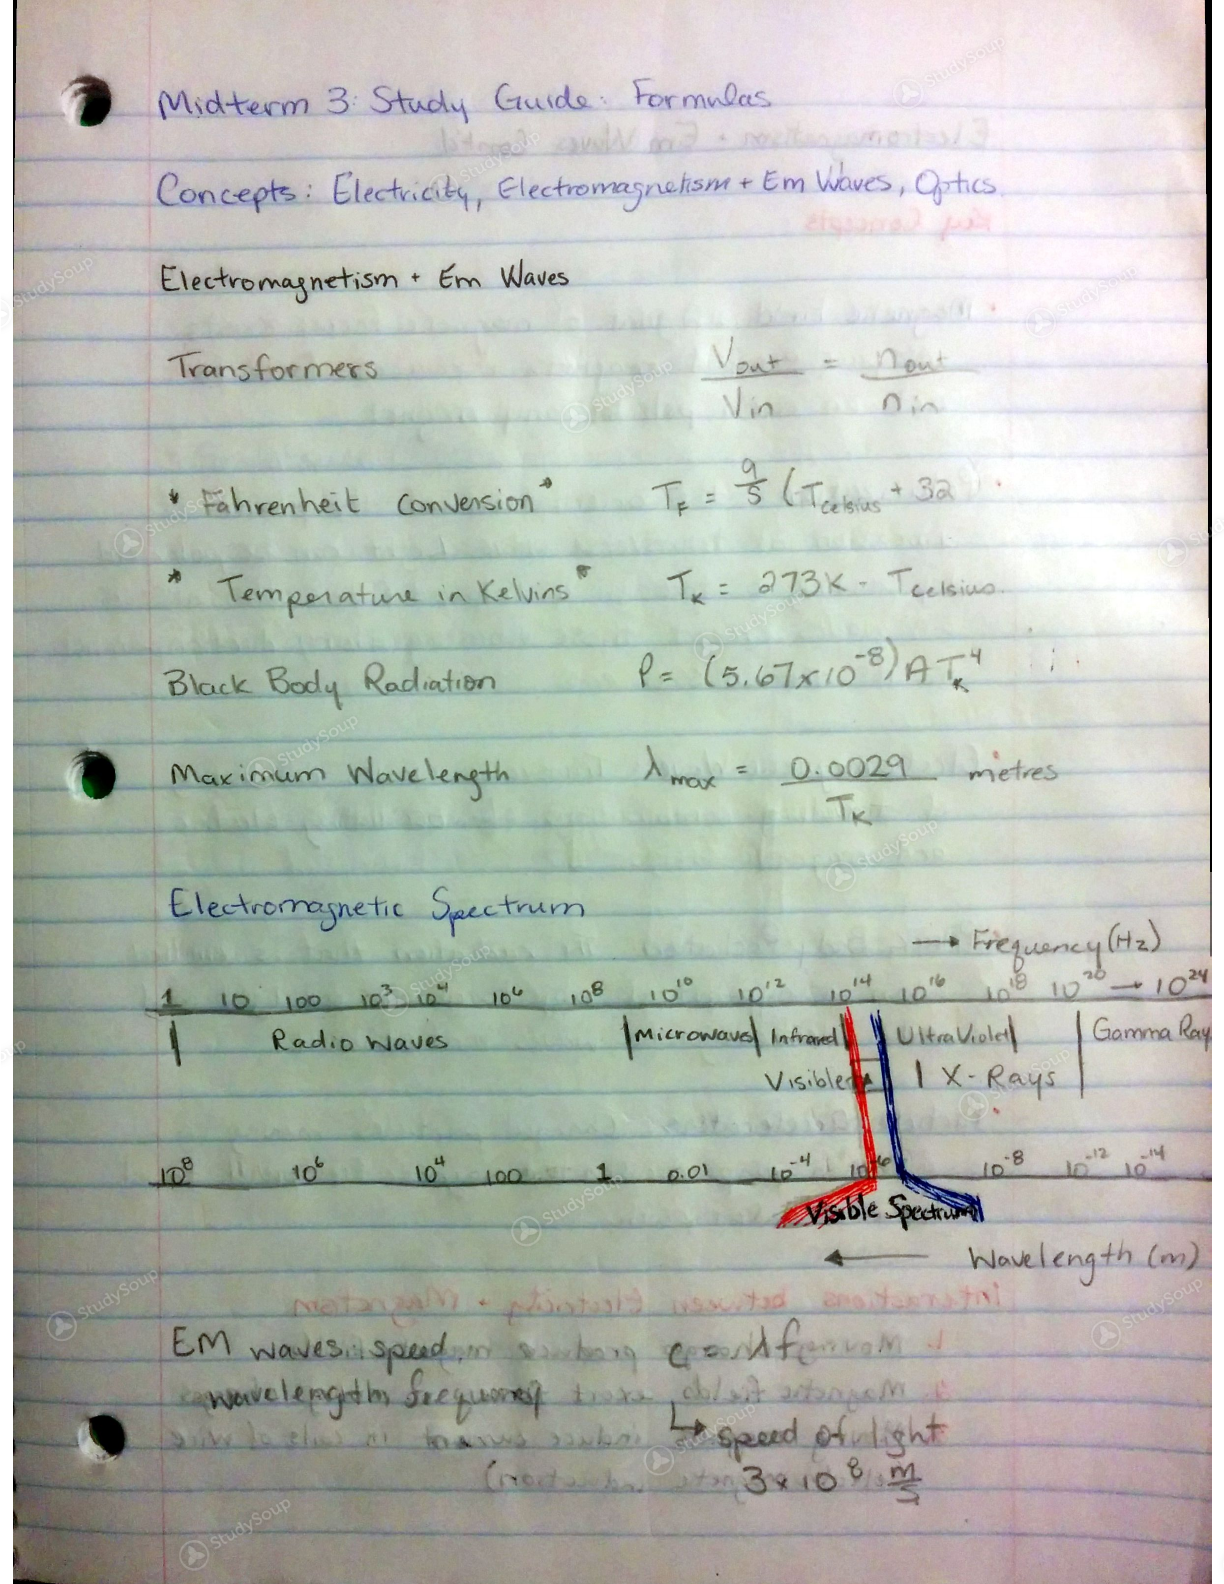 Midterm 3: Study Guide: Formulas
Concepts: Electricity, Electromagnetism + Em Waves, Optics.
Electromagnetism + Em Waves
Transformers Vout/Vin = nout/nin
* Fahrenheit Conversion * TF = 9/5 (TCelsius + 32
* Temperature in Kelvins * TK = 273K - TCelsius.
Black Body Radiation P = (5.67x10^-8) A TK^4
Maximum Wavelength λmax = 0.0029/TK metres
Electromagnetic Spectrum
→ Frequency (Hz)
1 10 100 10^3 10^4 10^6 10^8 10^10 10^12 10^14 10^16 10^18 10^20 → 10^24
Radio Waves | Microwaves | Infrared | UltraViolet | Gamma Ray
Visible | X-Rays
10^8 10^6 10^4 100 1 0.01 10^-4 10^-6 10^-8 10^-12 10^-14
Visible Spectrum
← Wavelength (m)
EM waves speed, c = λf
wavelength, frequency
↳ speed of light
3x10^8 m/s
StudySoup